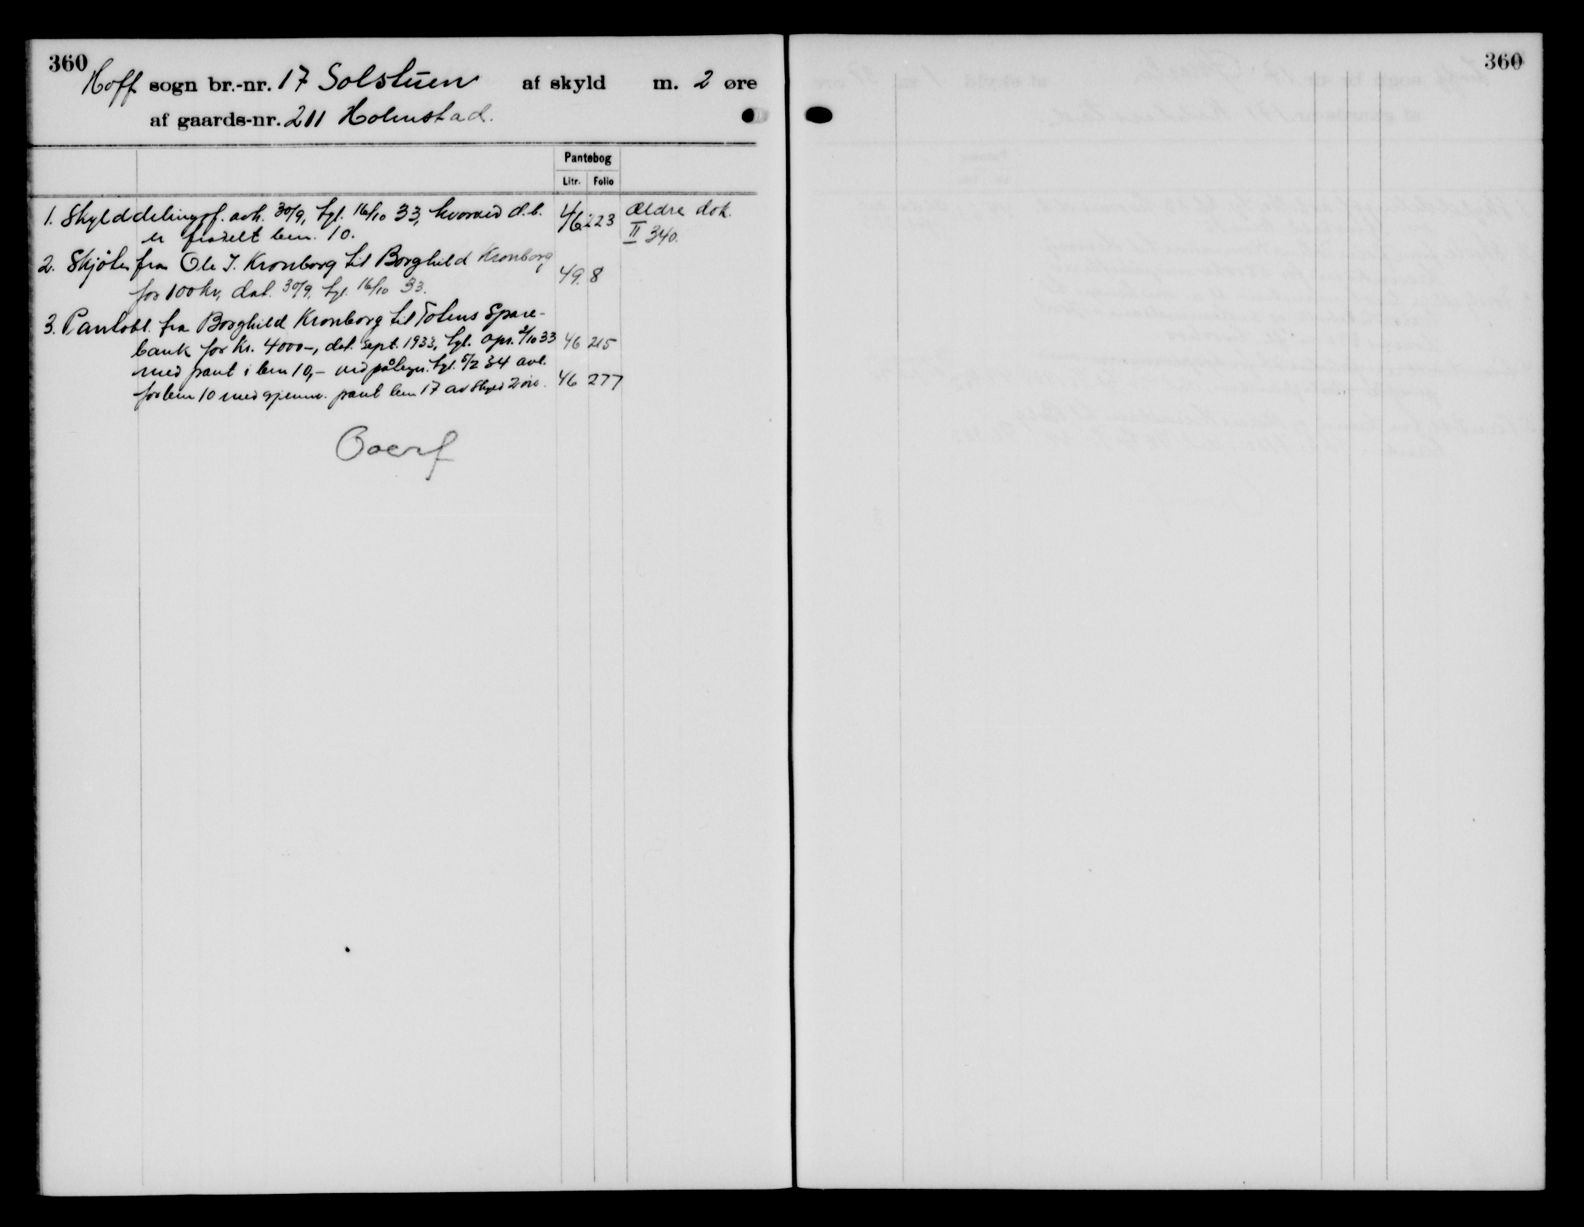 360
Hoff sogn br.-nr. 17 Solstuen af skyld m. 2 øre
af gaards-nr. 211 Holmstad.
Pantebog
Litr. Folio
1. Skylddelingsf. avh. 30/9, tgl. 16/10 33, hvorved d.b. 46 223 Ældre dok.
er fradelt bnr. 10. II 340.
2. Skjøte fra Ole J. Kronborg til Borghild Kronborg
for 100 kr, dat. 30/9, tgl. 16/10 33. 49. 8
3. Pantobl. fra Borghild Kronborg til Totens Spare-
bank for kr. 4000-, dat. sept. 1933, tgl. 2/10 33 46 215
med pant i bnr 10,- ved påtegn. tgl. 5/2 34 avl.
for bnr 10 med pant bnr 17 av skyld 2 øre. 46 277
Overf
360